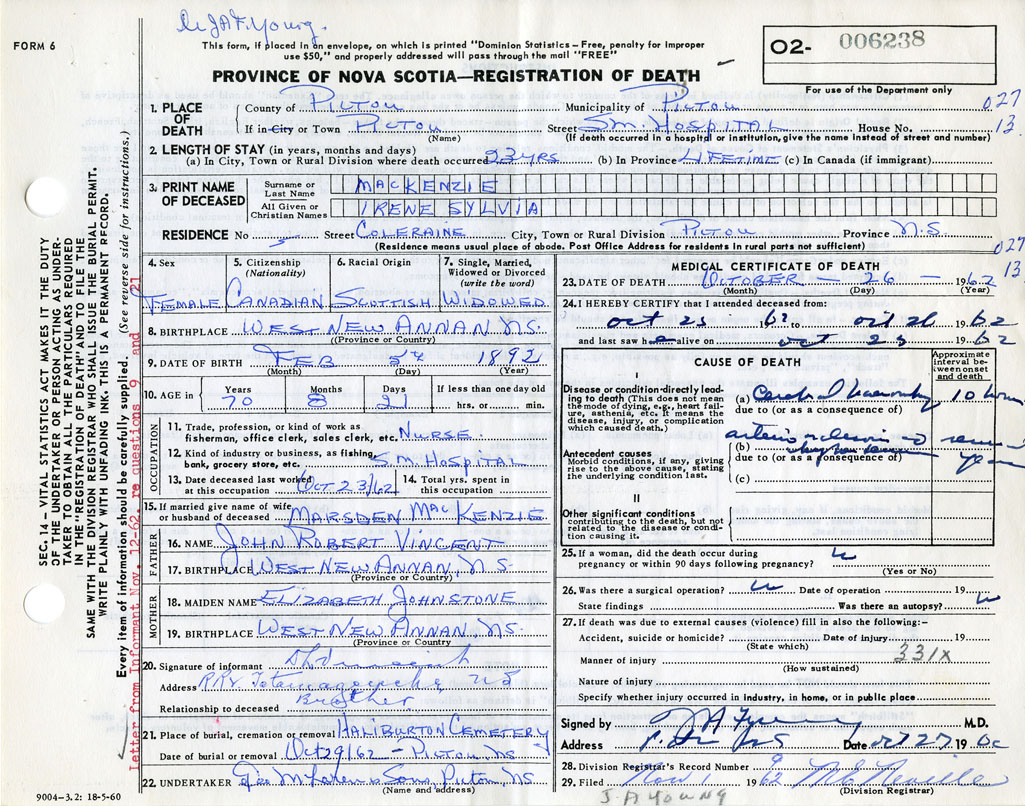 Dr JAF. Young.
FORM 6
This form, if placed in an envelope, on which is printed "Dominion Statistics – Free, penalty for improper
use $50," and properly addressed will pass through the mail "FREE"
O2- 006238
For use of the Department only
PROVINCE OF NOVA SCOTIA—REGISTRATION OF DEATH
1. PLACE OF DEATH
County of PICTOU Municipality of PICTOU 027
If in City or Town PICTOU Street S.M. HOSPITAL House No. 13
(Name) (If death occurred in a hospital or institution, give the name instead of street and number)
2. LENGTH OF STAY (in years, months and days)
(a) In City, Town or Rural Division where death occurred 23 YRS (b) In Province LIFETIME (c) In Canada (if immigrant)
3. PRINT NAME OF DECEASED
Surname or Last Name MACKENZIE
All Given or Christian Names IRENE SYLVIA
RESIDENCE No Street COLERAINE City, Town or Rural Division PICTOU Province N.S
(Residence means usual place of abode. Post Office Address for residents in rural parts not sufficient) 027
13
4. Sex 5. Citizenship (Nationality) 6. Racial Origin 7. Single, Married, Widowed or Divorced (write the word)
FEMALE CANADIAN SCOTTISH WIDOWED
8. BIRTHPLACE WEST NEW ANNAN, NS.
(Province or Country)
9. DATE OF BIRTH FEB 1892
(Month) (Day) (Year)
10. AGE in Years 70 Months 8 Days 21 If less than one day old hrs. or min.
OCCUPATION
11. Trade, profession, or kind of work as fisherman, office clerk, sales clerk, etc. NURSE
12. Kind of industry or business, as fishing, bank, grocery store, etc. S.M. HOSPITAL
13. Date deceased last worked at this occupation OCT 23/62 14. Total yrs. spent in this occupation
15. If married give name of wife or husband of deceased MARSDEN MACKENZIE
FATHER
16. NAME JOHN ROBERT VINCENT
17. BIRTHPLACE WEST NEW ANNAN, N.S.
(Province or Country)
MOTHER
18. MAIDEN NAME ELIZABETH JOHNSTONE
19. BIRTHPLACE WEST NEW ANNAN, NS.
(Province or Country)
20. Signature of informant
Address Tatamagouche NS
Relationship to deceased Brother
21. Place of burial, cremation or removal HALIBURTON CEMETERY
Date of burial or removal Oct 29/62 – PICTOU, NS
22. UNDERTAKER Sons, Pictou, NS
(Name and address)
9004–3.2: 18-5-60
MEDICAL CERTIFICATE OF DEATH
23. DATE OF DEATH OCTOBER – 26 – 1962
(Month) (Day) (Year)
24. I HEREBY CERTIFY that I attended deceased from:
Oct 25 1962 to Oct 26 1962
and last saw her alive on Oct 25 1962
CAUSE OF DEATH
Approximate interval between onset and death
I
Disease or condition directly leading to death (This does not mean the mode of dying, e.g., heart failure, asthenia, etc. It means the disease, injury, or complication which caused death.)
(a) Cerebral 10 hours
due to (or as a consequence of)
Antecedent causes
Morbid conditions, if any, giving rise to the above cause, stating the underlying condition last.
(b)
due to (or as a consequence of)
(c)
II
Other significant conditions
contributing to the death, but not related to the disease or condition causing it.
25. If a woman, did the death occur during pregnancy or within 90 days following pregnancy?
(Yes or No)
26. Was there a surgical operation? Date of operation 19
State findings Was there an autopsy?
27. If death was due to external causes (violence) fill in also the following:-
Accident, suicide or homicide? Date of injury 19
(State which)
Manner of injury 331X
(How sustained)
Nature of injury
Specify whether injury occurred in industry, in home, or in public place
Signed by M.D.
Address Date Oct 27 19
28. Division Registrar's Record Number 9
29. Filed Nov 1 1962
(Division Registrar)
J. A YOUNG
SEC. 14 – VITAL STATISTICS ACT MAKES IT THE DUTY
OF THE UNDERTAKER OR PERSON ACTING AS UNDER-
TAKER TO OBTAIN ALL THE PARTICULARS REQUIRED
IN THE "REGISTRATION OF DEATH" AND TO FILE THE
SAME WITH THE DIVISION REGISTRAR WHO SHALL ISSUE THE BURIAL PERMIT.
WRITE PLAINLY WITH UNFADING INK. THIS IS A PERMANENT RECORD.
Every item of information should be carefully supplied. (See reverse side for instructions.)
Letter from Informant Nov. 12-62. re questions 9 and 21